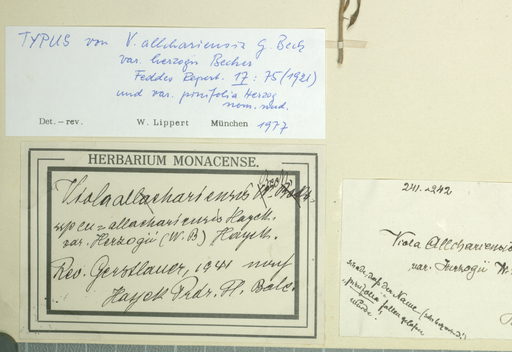 TYPUS von V. allchariensis G. Beck
var. herzogii Becker
Feddes Repert. 17: 75 (1921)
und var. pinifolia Herzog
nom. nud.
Det. – rev. W. Lippert München 1977
HERBARIUM MONACENSE.
Viola allachariensis
ssp eu-allachariensis Hayek.
var. Herzogii (W.B) Hayek.
Rev. Gerstlauer, 1941
Hayek Prdr. Fl. Balc.
Viola Allchariensis
var. Herzogii W.
schade, daß der Name
pinifolia fallen gelassen
wurde.